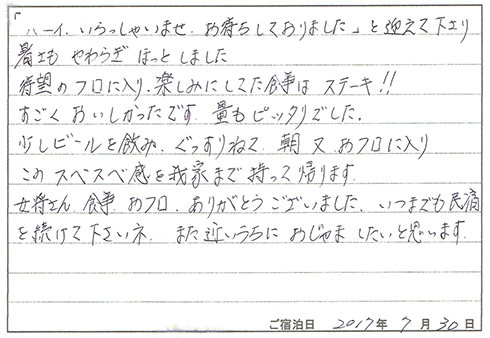 「ハーイ、いらっしゃいませ、お待ちしておりました」と迎えて下さり
暑さも やわらぎ ほっとしました
待望のフロに入り、楽しみにしてた食事は ステーキ!!
すごく おいしかったです。量もピッタリでした。
少しビールを飲み、ぐっすりねて、朝 又 おフロに入り
この スベスベ感を我家まで持って帰ります。
女将さん、食事、おフロ、ありがとうございました、いつまでも民宿
を続けて下さいネ、また近いうちに おじゃましたいと思います。
ご宿泊日 2017年 7月 30日